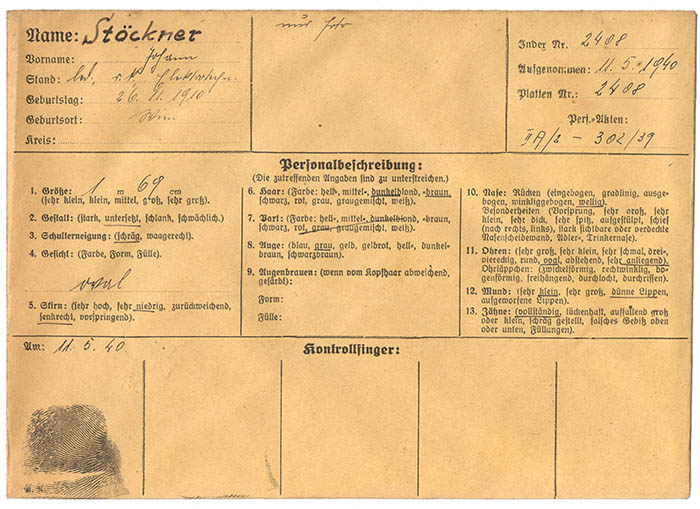 Name: Stöckner
Vorname: Johann
Stand: led. r. k. Elektrotechn.
Geburtstag: 26. 11. 1910
Geburtsort: Wien
Kreis:
nur Foto
Index Nr. 2408
Aufgenommen: 11. 5. 1940
Platten Nr.: 2408
Pers.-Akten:
302/39
Personalbeschreibung:
(Die zutreffenden Angaben sind zu unterstreichen.)
1. Größe: 1 m 69 cm
(sehr klein, klein, mittel, groß, sehr groß).
2. Gestalt: (stark, untersetzt, schlank, schwächlich).
3. Schulterneigung: (schräg, waagerecht).
4. Gesicht: (Farbe, Form, Fülle).
oval
5. Stirn: (sehr hoch, sehr niedrig, zurückweichend,
senkrecht, vorspringend).
6. Haar: (Farbe: hell-, mittel-, dunkelblond, -braun,
schwarz, rot, grau, graugemischt, weiß).
7. Bart: (Farbe: hell-, mittel-, dunkelblond, -braun,
schwarz, rot, grau, graugemischt, weiß).
8. Auge: (blau, grau, gelb, gelbrot, hell-, dunkel-
braun, schwarzbraun).
9. Augenbrauen: (wenn vom Kopfhaar abweichend,
gefärbt):
Form:
Fülle:
10. Nase: Rücken (eingebogen, gradlinig, ausge-
bogen, winkliggebogen, wellig).
Besonderheiten (Vorsprung, sehr groß, sehr
klein, sehr dick, sehr spitz, aufgestülpt, schief
(nach rechts, links), stark sichtbare oder verdeckte
Nasenscheidewand, Adler-, Trinkernase).
11. Ohren: (sehr groß, sehr klein, sehr schmal, drei-,
viereckig, rund, oval, abstehend, sehr anliegend).
Ohrläppchen: (zwickelförmig, rechtwinklig, bo-
genförmig, freihängend, durchlocht, durchrissen).
12. Mund: (sehr klein, sehr groß, dünne Lippen,
aufgeworfene Lippen).
13. Zähne: (vollständig, lückenhaft, auffallend groß
oder klein, schräg gestellt, falsches Gebiß oben
oder unten, Füllungen).
Am: 11. 5. 40
Kontrollfinger: